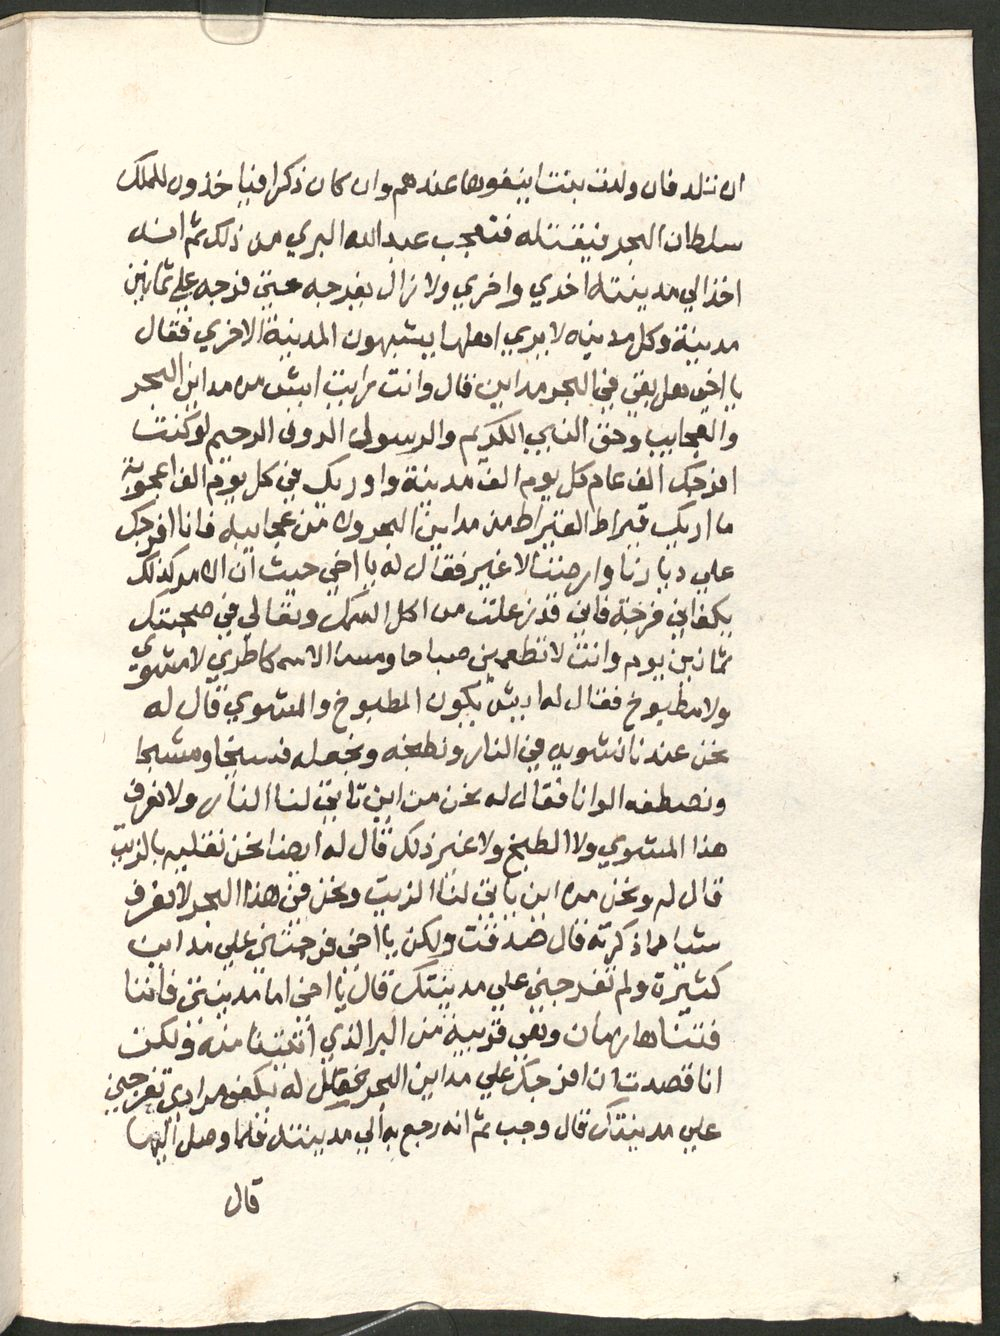 ان تلد فان ولدت بنت ابيقوها عندهم وان كان ذكرا فياخذوه للملك
سلطان البحر فيقتله فتعجب عبد الله البري من ذلك ثم انه
اخذ الي مدينته اخدي واخري ولا زال يفرجه حتي فرجه علي ثمانين
مدينة وكل مدينه لا يري اهلها يشبهون المدينة الاخري فقال
يا اخي هل بقي في البحر مداين قال وانت رايت ايش من مداين البحر
والعجايب وحق النبي الكريم والرسول الروف الرحيم لو كنت
افرجك الف عام كل يوم الف مدينة واوريك في كل يوم الف اعجوبة
ما اريك قيراط القيراط من مداين البحر ولا من عجايبه فانا افرجك
علي ديارنا وارضنا لا غير فقال له يا اخي حيث ان الامر كذلك
يكفاني فرجة فاني قد زعلت من اكل السمك وبقالي في صحبتك
ثمانين يوم وانت لا تطعمني صباحا ومسا الا سمكا طري لا مشوي
ولا مطبوخ فقال له ايش يكون المطبوخ والمشوي قال له
نحن عندنا نشويه في النار ونطبخه ونجعله فسيخا ومشبحا
ونصطفه الوانا فقال له نحن من اين تاتي لنا النار ولا نعرف
هذا المشوي ولا الطبخ ولا غير ذلك قال له ايضا نحن نقليه بالزيت
قال له ونحن من اين ياتي لنا الزيت ونحن في هذا البحر لا نعرف
شيا مما ذكرته قال صدقت ولكن يا اخي فرجتني علي مداين
كثيرة ولم تفرجني علي مدينتك قال يا اخي اما مدينتي فاننا
فتناها بزمان وهي قريبة من البر الذي اتينا منه ولكن
انا قصدت ان افرجك علي مداين البحر فقال له يكفي مرادي تفرجني
علي مدينتك قال وجب ثم انه رجع به الي مدينته فلما وصل اليها
قال